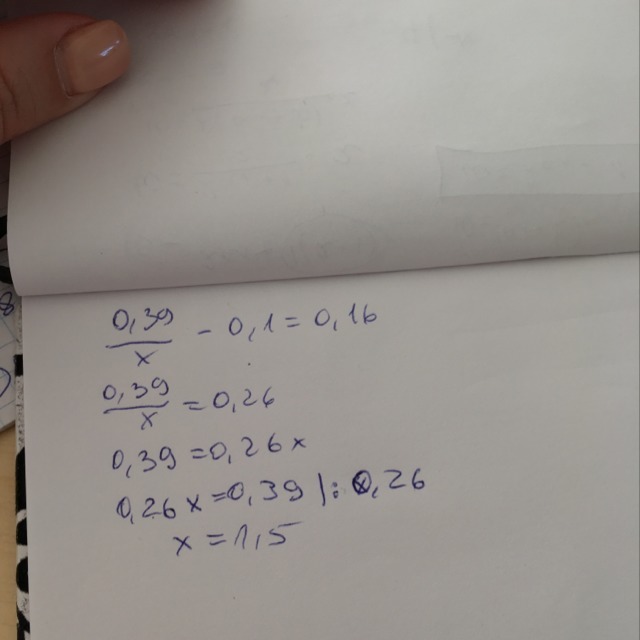 0,39/x - 0,1 = 0,16
0,39/x = 0,26
0,39 = 0,26x
0,26x = 0,39 |: 0,26
x = 1,5